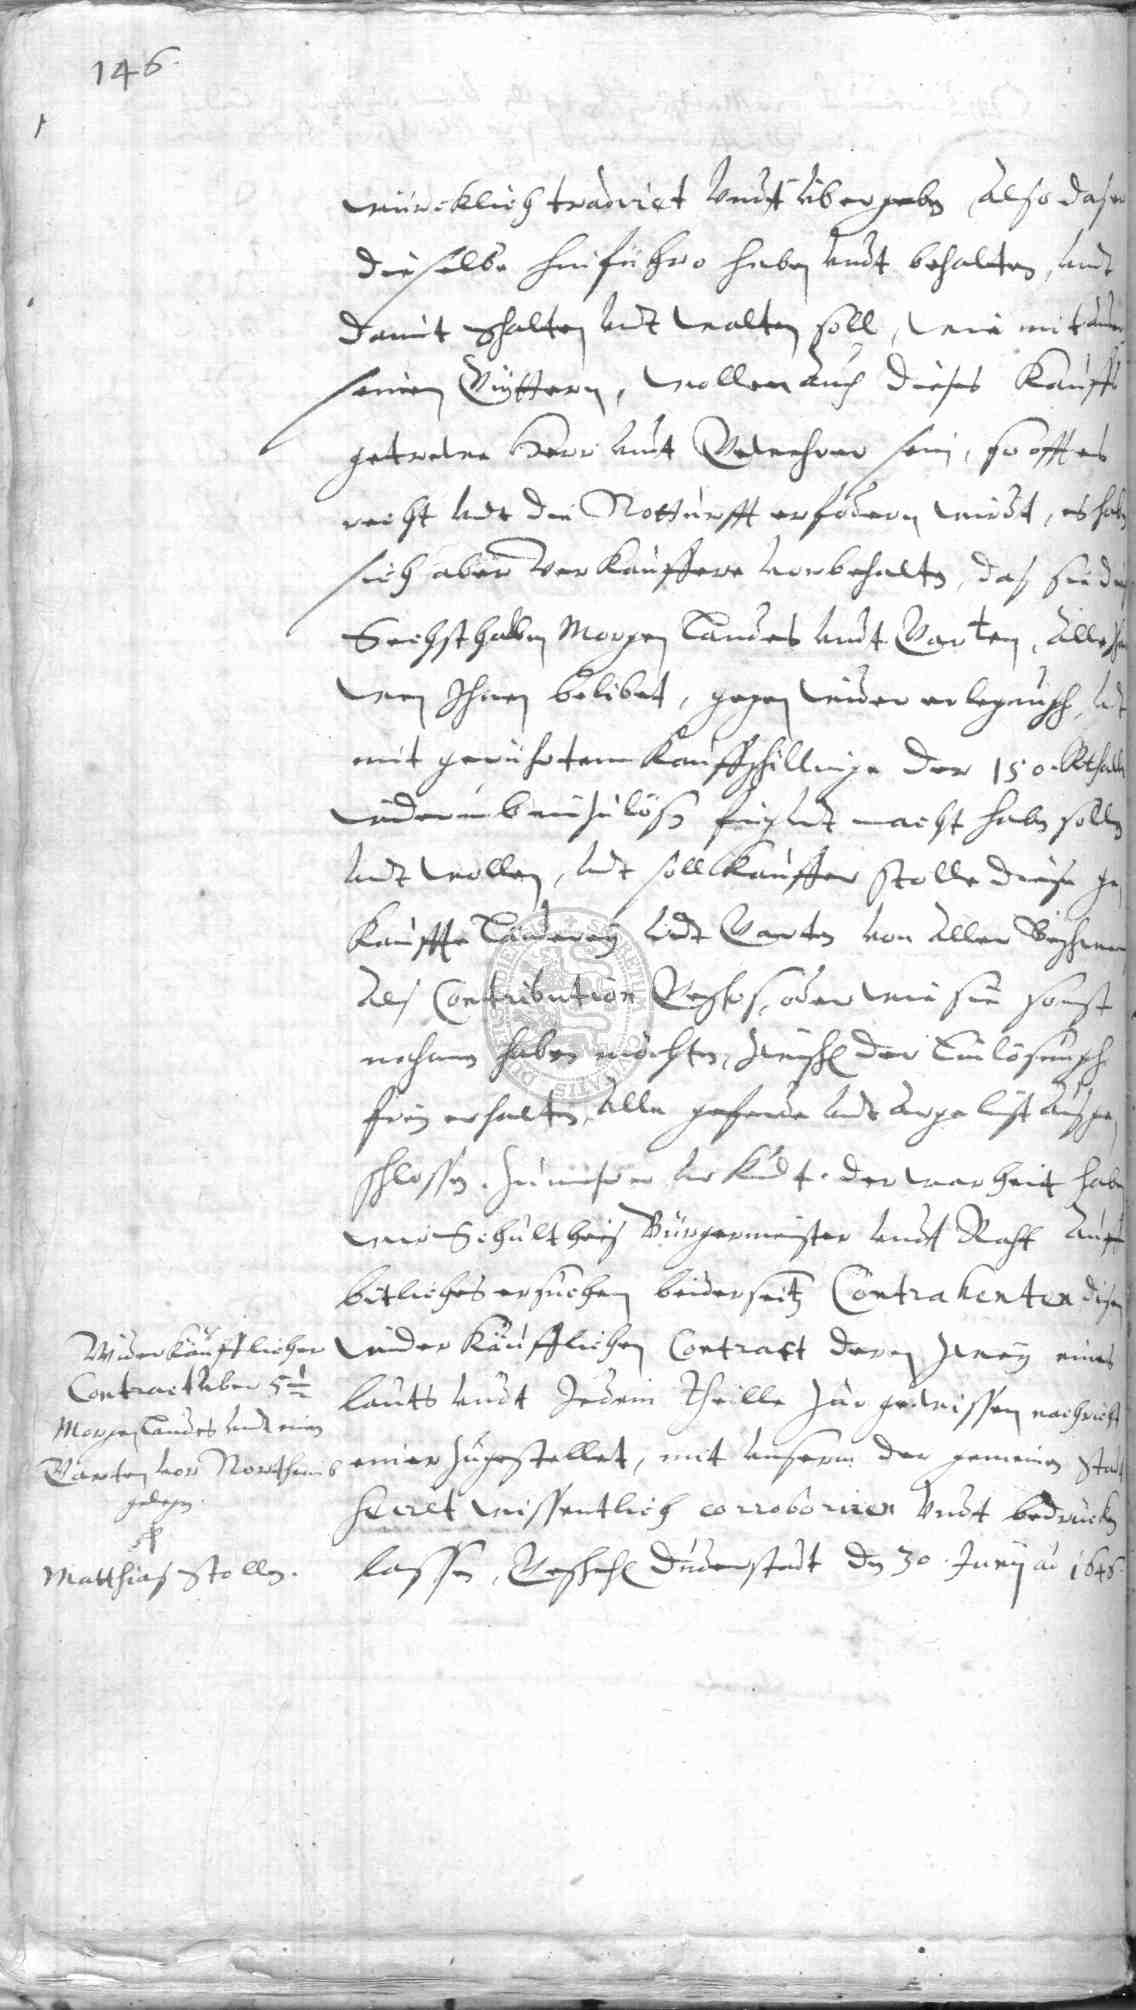 146.
würcklich tradirt undt übergeben, also daß er
dieselbe hinführo haben undt behalten, undt
damit schalten undt walten soll, wie mit andern
seinen Güttern, wollen auch dieses Kauffs
getrewe Herr undt Gewehrer sein, so offt es
recht undt die Notturfft erfodern wirdt, es haben
sich aber Verkauffere vorbehalten, daß sie die
Sechsthalben Morgen Landes undt Garten,
wen Ihnen belibet, gegen wider erlegung, undt
mit gerührtem Kauffschillinge der 150 Rthaler
widerumb einzulösen fug undt macht haben sollen
undt wollen, undt soll Kauffer Stolle diese ge
kauffte Länderey undt Garten von aller Beschwer
als Contribution Geschos, oder wie sie sonst
nahmen haben möchten, der Einlösung
frey erhalten, alle gefehrde undt argelist außge
schlossen. Zu mehrer urkundt der warheit haben
wir Schultheis Bürgermeister undt Raht auff
bitliches ersuchen beiderseitz Contrahenten disen
widerkäufflichen Contract deren zwey eines
lauts undt Jedem theille zur gewissen nachricht
einer zugestellet, mit unserm der gemeinen Stadt
Secret wissentlich corroboriren undt bedrucken
lassen, Geschehen Duderstadt den 30. Junij ao 1646.
Widerkäufflicher
Contract uber 5 1/2
Morgen Landes undt einen
Garten vor Northeimb
gelegen.
Matthias Stollen.